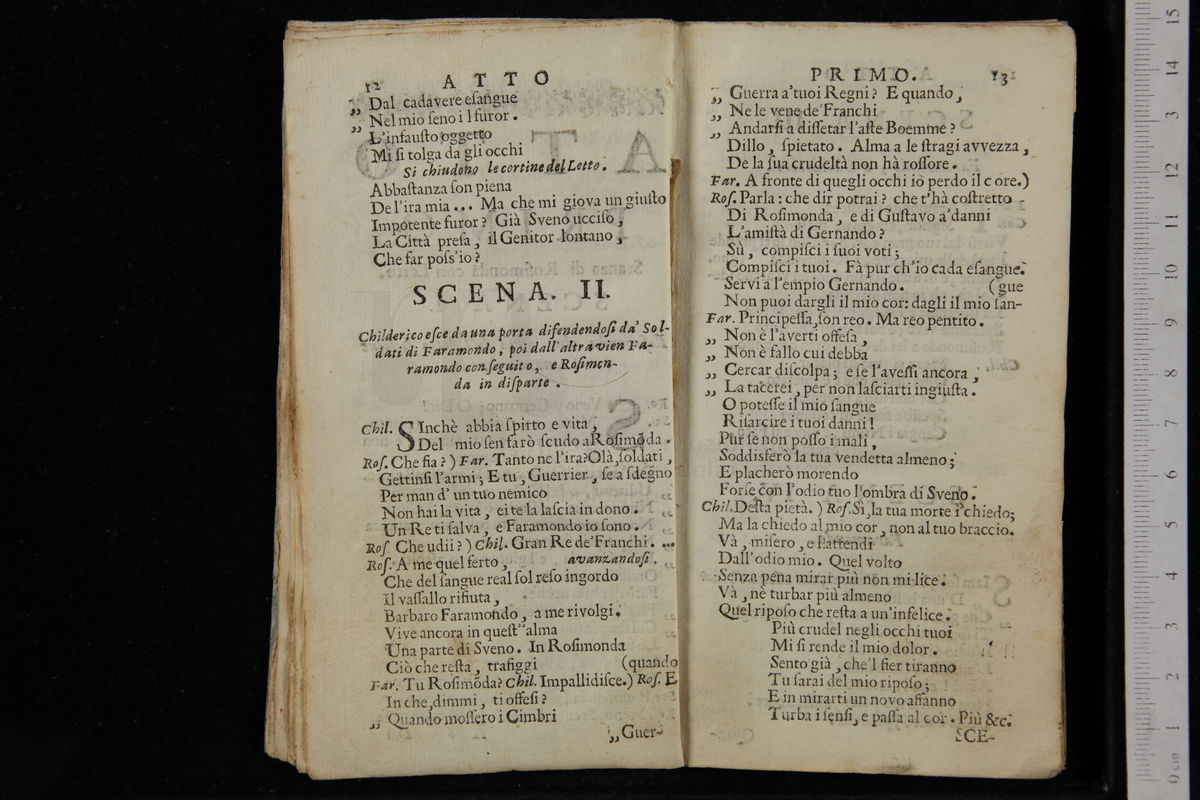 12 ATTO
„ Dal cadavere eſangue
„ Nel mio ſeno i l furor.
„ L'infauſto oggetto
Mi ſi tolga da gli occhi
Si chiudono le cortine del Letto.
Abbaſtanza ſon piena
De l'ira mia ... Ma che mi giova un giuſto
Impotente furor? Già Sveno ucciſo,
La Città preſa, il Genitor lontano,
Che far poſs'io?
SCENA. II.
Childerico eſce da una porta difendendoſi da' Sol-
dati di Faramondo, poi dall'altra vien Fa-
ramondo con ſeguito, e Roſimon-
da in diſparte.
Chil. SInchè abbia ſpirto e vita,
Del mio ſen farò ſcudo a Roſimōda.
Roſ. Che fia?) Far. Tanto ne l'ira? Olà, ſoldati,
Gettinſi l'armi; E tu, Guerrier, ſe a ſdegno
Per man d'un tuo nemico
Non hai la vita, ei te la laſcia in dono.
Un Re ti ſalva, e Faramondo io ſono.
Roſ. Che udii?) Chil. Gran Re de'Franchi. ...
Roſ. A me quel ferto, avanzandoſi.
Che del ſangue real ſol reſo ingordo
Il vaſſallo rifiuta,
Barbaro Faramondo, a me rivolgi.
Vive ancora in queſt'alma
Una parte di Sveno. In Roſimonda
Ciò che reſta, trafiggi (quando
Far. Tu Roſimōda? Chil. Impallidiſce.) Roſ. E
In che, dimmi, ti offeſi?
„ Quando moſſero i Cimbri
„ Guer-
PRIMO. 13
„ Guerra a'tuoi Regni? E quando,
„ Ne le vene de'Franchi
„ Andarſi a diſſetar l'aſte Boemme?
Dillo, ſpietato. Alma a le ſtragi avvezza,
De la ſua crudeltà non hà roſſore.
Far. A fronte di quegli occhi io perdo il c ore.)
Roſ. Parla: che dir potrai? che t'hà coſtretto
Di Roſimonda, e di Guſtavo a'danni
L'amiſtà di Gernando?
Sù, compiſci i ſuoi voti;
Compiſci i tuoi. Fà pur ch'io cada eſangue.
Servi a l'empio Gernando. (gue
Non puoi dargli il mio cor: dagli il mio ſan-
Far. Principeſſa, ſon reo. Ma reo pentito.
„ Non è l'averti offeſa,
„ Non è fallo cui debba
„ Cercar diſcolpa; e ſe l'aveſſi ancora,
„ La tacerei, per non laſciarti ingiuſta.
O poteſſe il mio ſangue
Riſarcire i tuoi danni!
Pur ſe non poſſo i mali,
Soddisferò la tua vendetta almeno;
E placherò morendo
Forſe con l'odio tuo l'ombra di Sveno.
Chil. Deſta pietà.) Roſ. Sì, la tua morte i'chiedo;
Ma la chiedo al mio cor, non al tuo braccio.
Và, miſero, e l'attendi
Dall'odio mio. Quel volto
Senza pena mirar più non mi lice.
Và, nè turbar più almeno
Quel ripoſo che reſta a un'infelice.
Più crudel negli occhi tuoi
Mi ſi rende il mio dolor.
Sento già, che'l fier tiranno
Tu ſarai del mio ripoſo;
E in mirarti un novo affanno
Turba i ſenſi, e paſſa al cor. Più &c.
SCE-